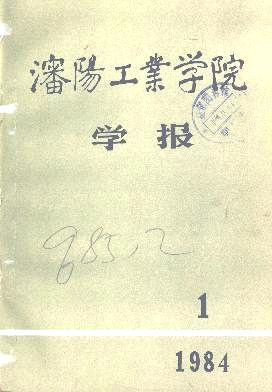 瀋陽工業学院
学报
985.2
1
1984